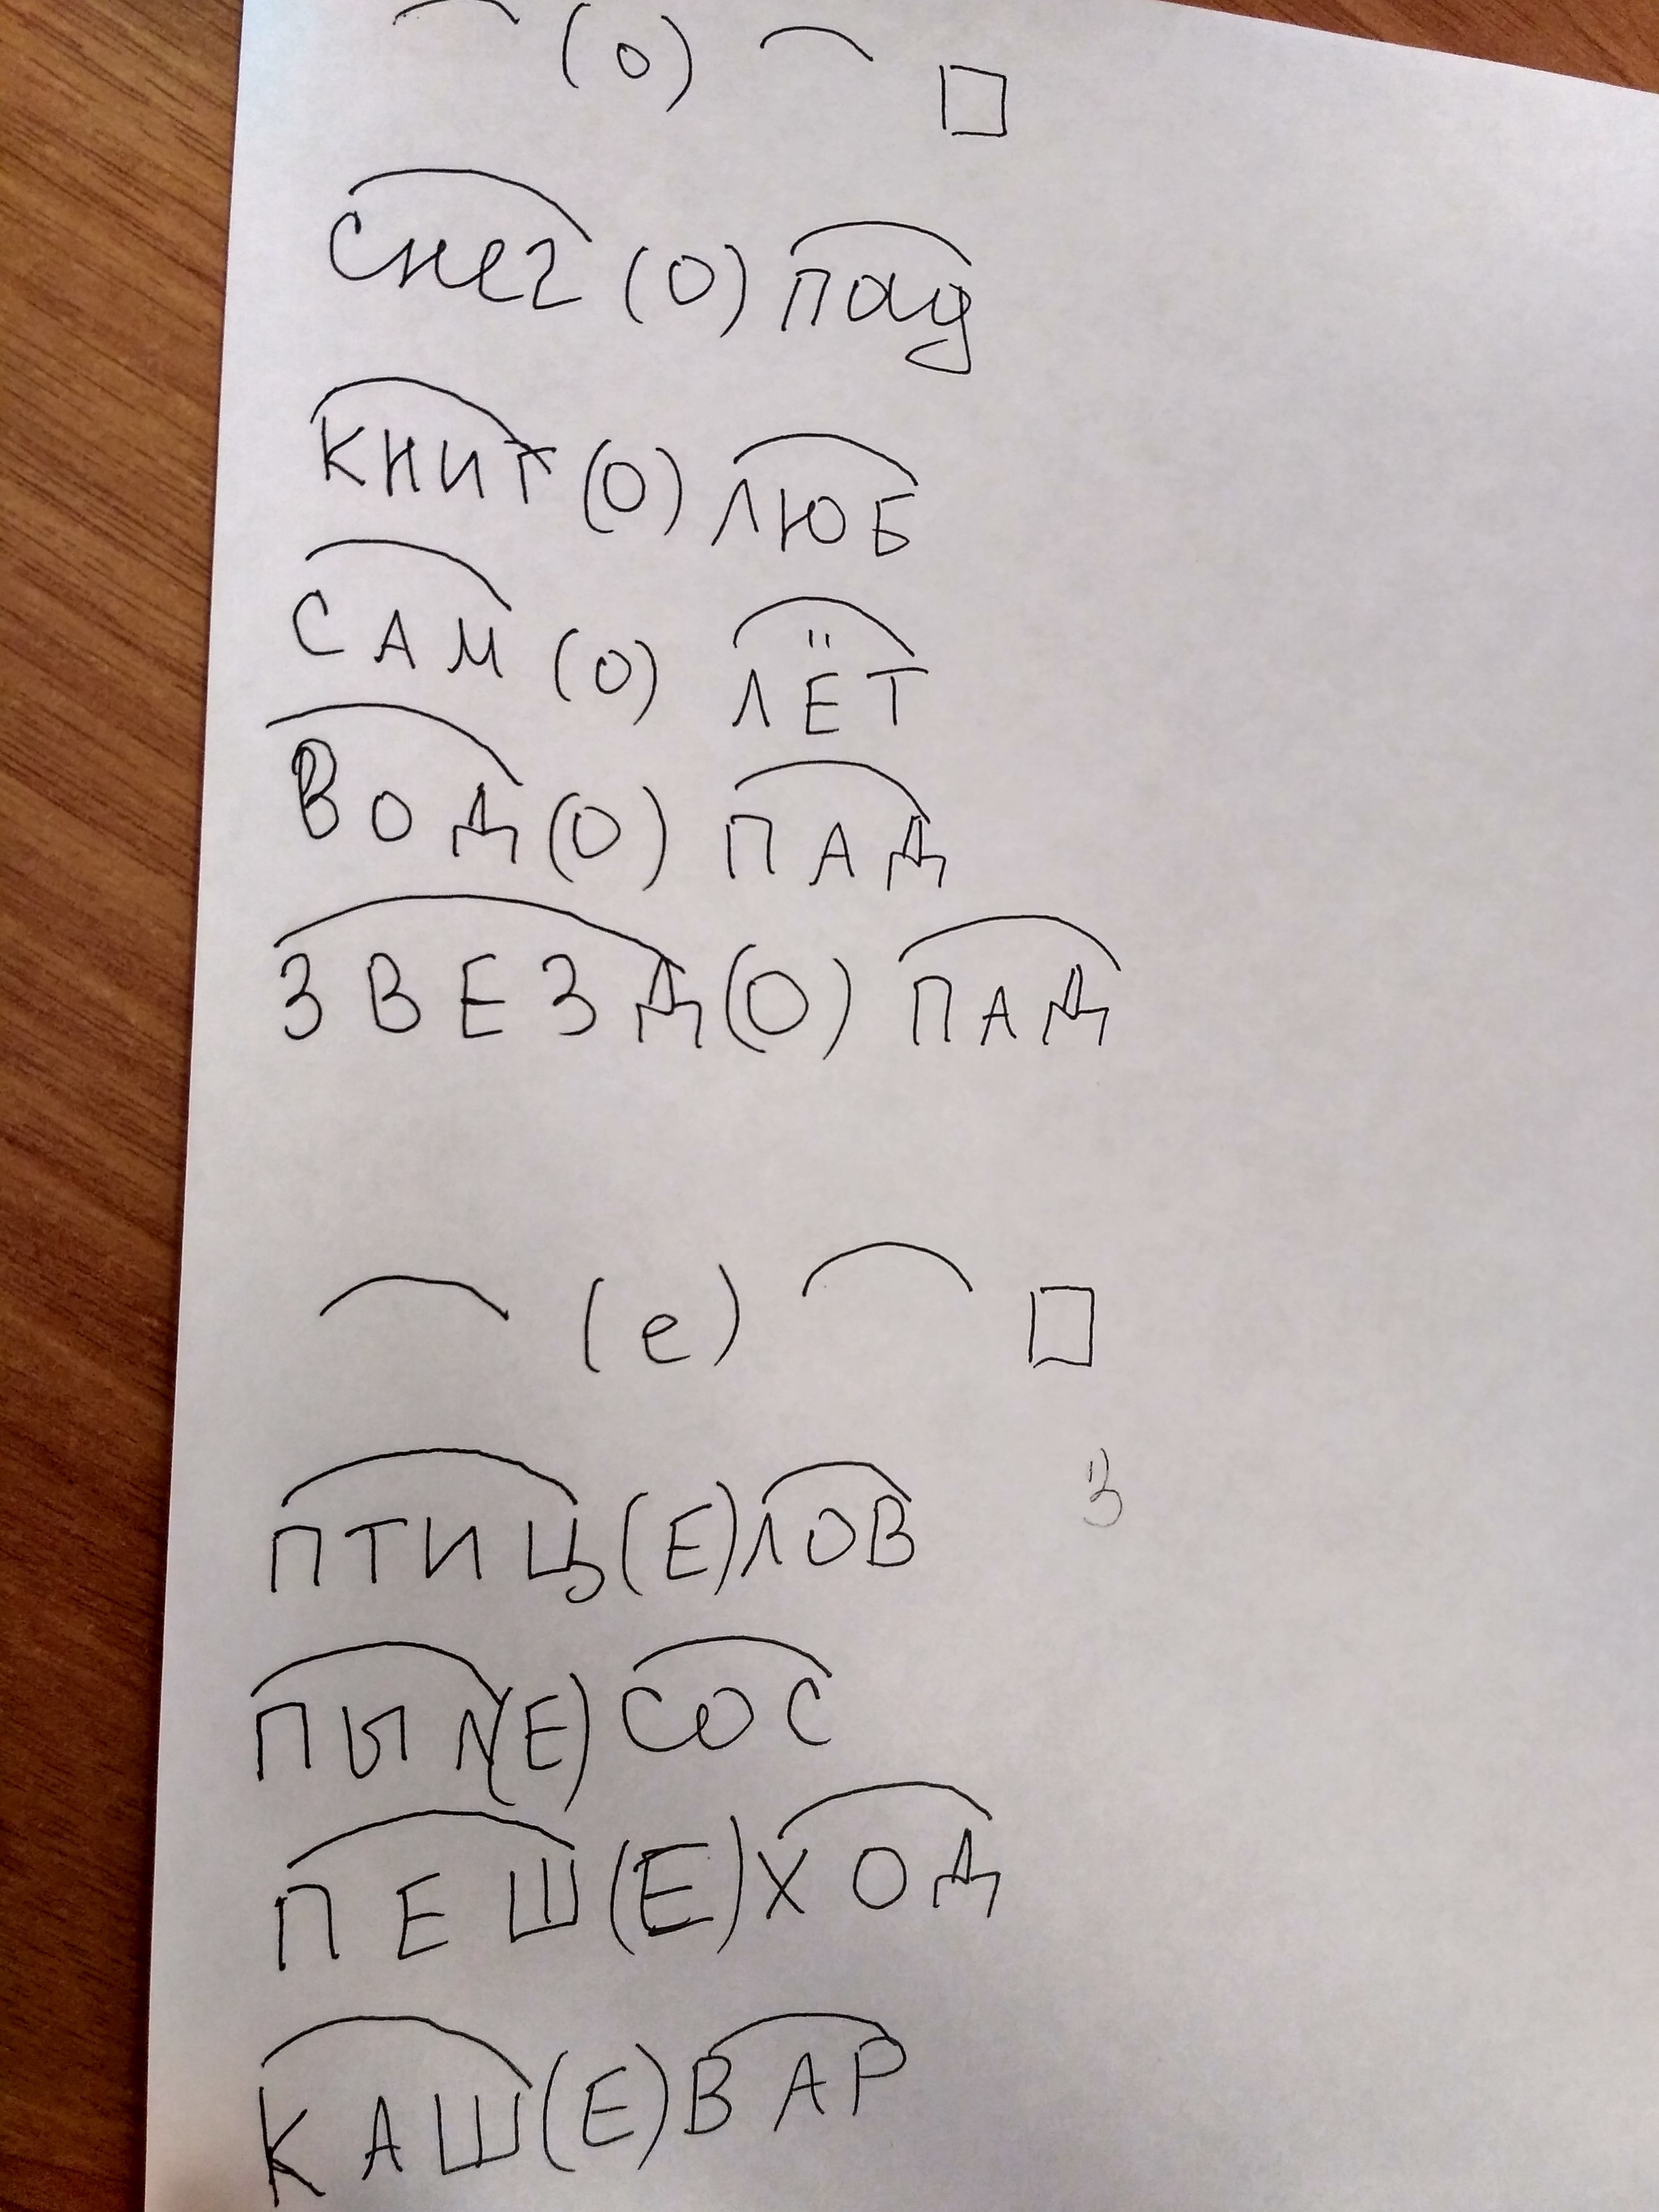 (о)
Снег (о) пад
КНИГ (О) ЛЮБ
САМ (О) ЛЁТ
ВОД (О) ПАД
ЗВЕЗД (О) ПАД
(е)
ПТИЦ (Е) ЛОВ
З
ПЫЛ (Е) СОС
ПЕШ (Е) ХОД
КАШ (Е) ВАР